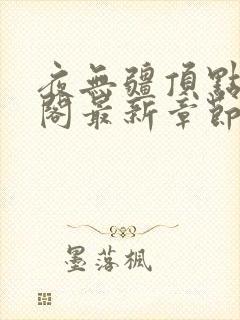 夜無疆頂點
閣最新章節
墨落楓